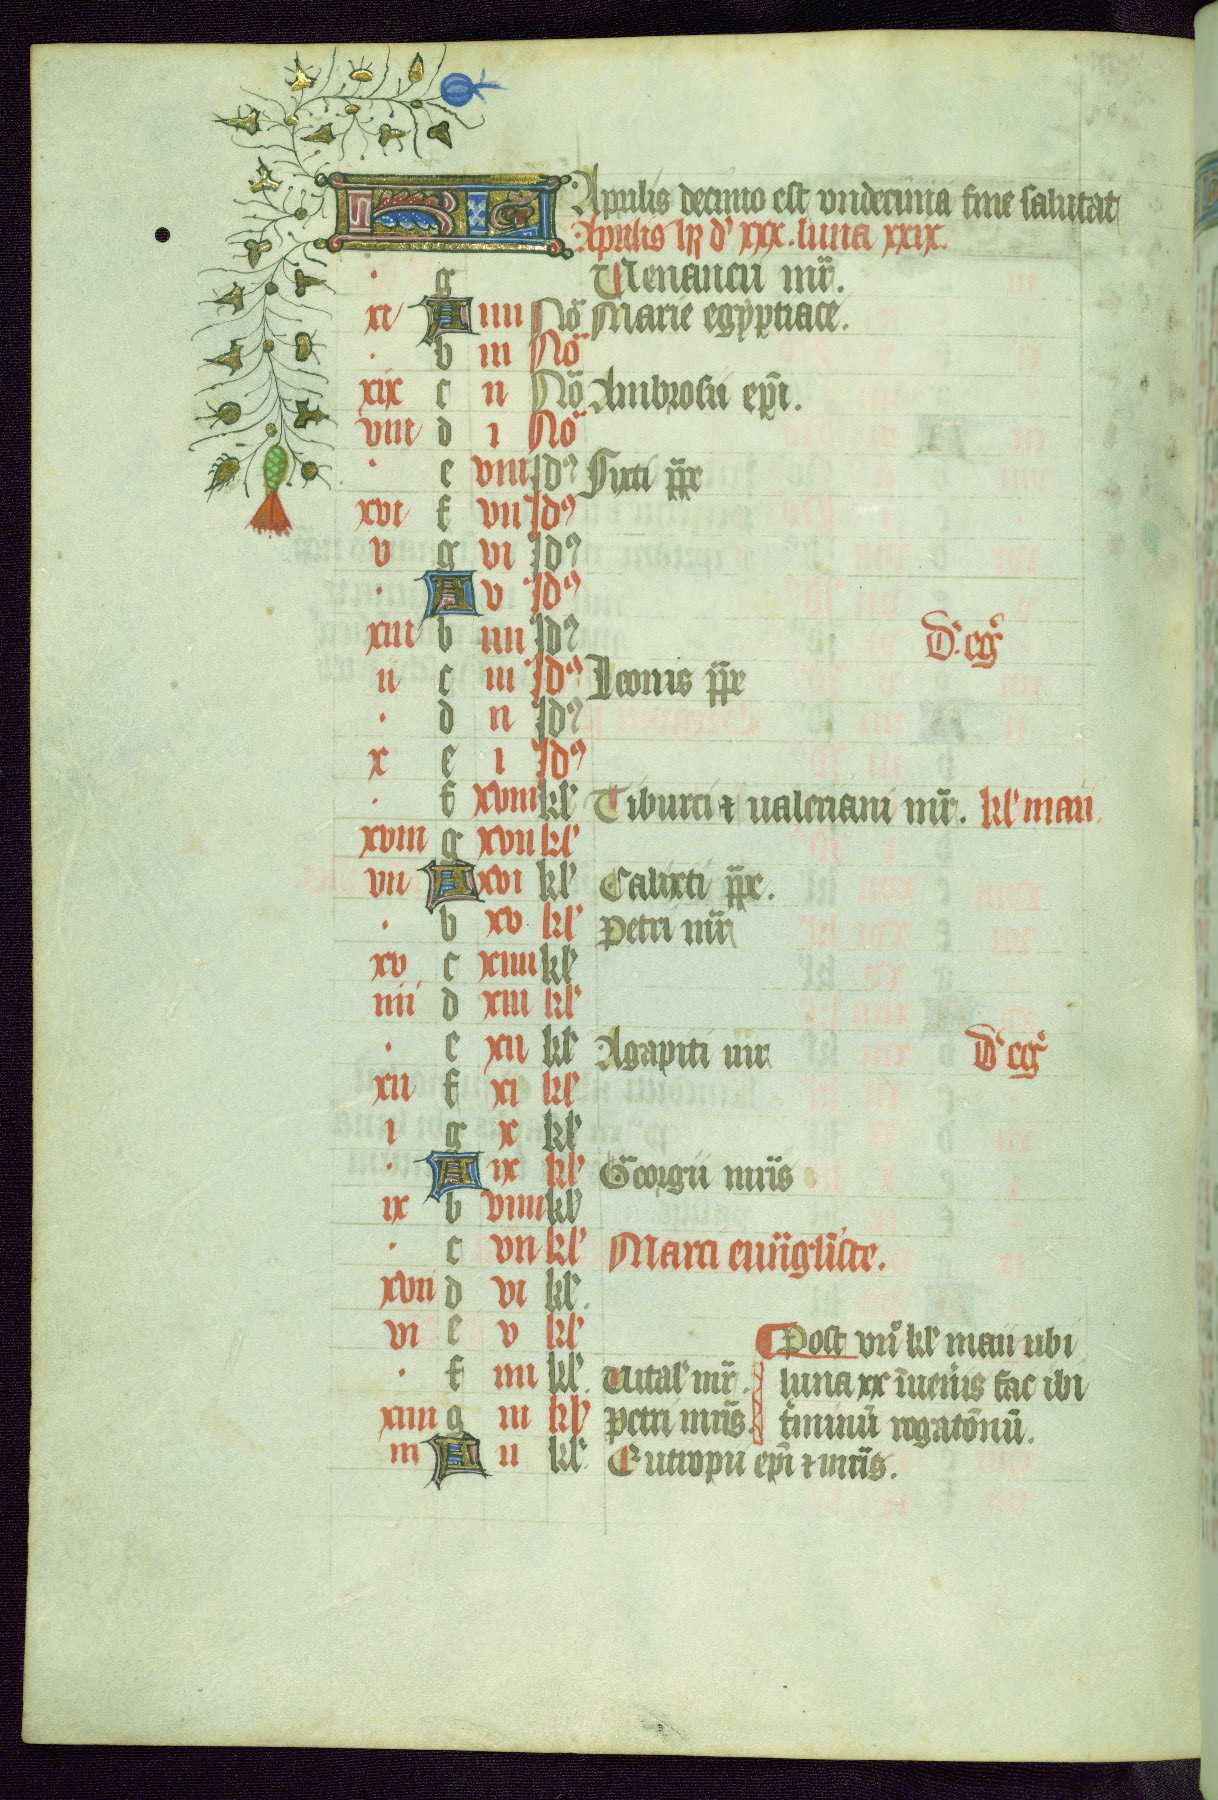 KL Aprilis decimo est undecima fine salutat
Aprilis hȝ d' xxx. luna xxix.
. g Venancii mr̄.
xi A iiii No Marie egyptiace.
. b iii No
xix c ii No Ambrosii ep̄i.
viii d i No
. e viii Id9 Sixti pp̄e
xvi f vii Id9
v g vi Id9
. A v Id9
xiii b iiii Id9 D. eg̃
ii c iii Id9 Leonis pp̄e
. d ii Id9
x e i Id9
. f xviii kl' Tiburci ⁊ valeriani mr̄. kl' maii.
xviii g xvii kl'
vii A xvi kl' Calixti pp̄e.
. b xv kl' Petri mr̄
xv c xiiii kl'
iiii d xiii kl'
. e xii kl' Agapiti mr̄ D' eg̃
xii f xi kl'
i g x kl'
. A ix kl' Georgii mr̄is
ix b viii kl'
. c vii kl' Marci euu̅gl̅iste.
xvii d vi kl'
vi e v kl' Post vii kl' maii ubi
. f iiii kl' Vital' mr̄. luna xx īueneris fac ibi
xiiii g iii kl' Petri mr̄is. t̄minū rogatōnū.
iii A ii kl' Eutropii ep̄i ⁊ mr̄is.